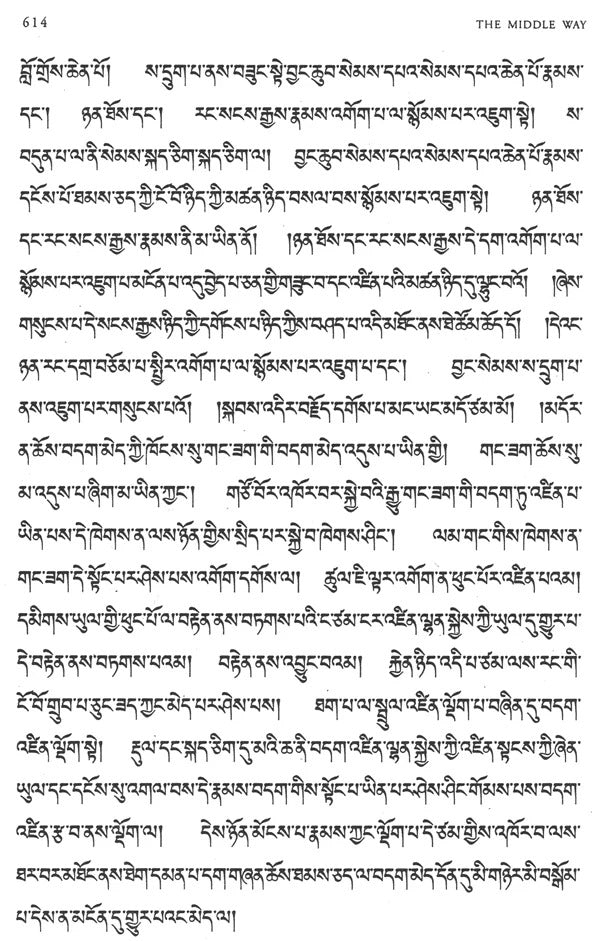 614 THE MIDDLE WAY
བློ་གྲོས་ཆེན་པོ། ས་དྲུག་པ་ནས་བཟུང་སྟེ་བྱང་ཆུབ་སེམས་དཔའ་སེམས་དཔའ་ཆེན་པོ་རྣམས་
དང༌། ཉན་ཐོས་དང༌། རང་སངས་རྒྱས་རྣམས་འགོག་པ་ལ་སྙོམས་པར་འཇུག་སྟེ། ས་
བདུན་པ་ལ་ནི་སེམས་སྐད་ཅིག་སྐད་ཅིག་ལ། བྱང་ཆུབ་སེམས་དཔའ་སེམས་དཔའ་ཆེན་པོ་རྣམས་
དངོས་པོ་ཐམས་ཅད་ཀྱི་ངོ་བོ་ཉིད་ཀྱི་མཚན་ཉིད་བསལ་བས་སྙོམས་པར་འཇུག་སྟེ། ཉན་ཐོས་
དང་རང་སངས་རྒྱས་རྣམས་ནི་མ་ཡིན་ནོ། །ཉན་ཐོས་དང་རང་སངས་རྒྱས་དེ་དག་འགོག་པ་ལ་
སྙོམས་པར་འཇུག་པ་མངོན་པ་འདུ་བྱེད་པ་ཅན་གྱི་གཟུང་བ་དང་འཛིན་པའི་མཚན་ཉིད་དུ་ལྟུང་བའོ། །ཞེས་
གསུངས་པ་དེ་སངས་རྒྱས་ཉིད་ཀྱི་དགོངས་པ་ཉིད་ཀྱིས་བཤད་པ་འདི་མཐོང་ནས་ཐེ་ཚོམ་ཆོད་དོ། །དེའང་
ཉན་རང་དགྲ་བཅོམ་པ་སྤྱིར་འགོག་པ་ལ་སྙོམས་པར་འཇུག་པ་དང༌། བྱང་སེམས་ས་དྲུག་པ་
ནས་འཇུག་པར་གསུངས་པའོ། །སྐབས་འདིར་བརྗོད་དགོས་པ་མང་ཡང་མདོ་ཙམ་མོ། །མདོར་
ན་ཆོས་བདག་མེད་ཀྱི་ཁོངས་སུ་གང་ཟག་གི་བདག་མེད་འདུས་པ་ཡིན་གྱི། གང་ཟག་ཆོས་སུ་
མ་འདུས་པ་ཞིག་མ་ཡིན་ཀྱང༌། གཙོ་བོར་འཁོར་བར་སྐྱེ་བའི་རྒྱུ་གང་ཟག་གི་བདག་ཏུ་འཛིན་པ་
ཡིན་པས་དེ་ཁེགས་ན་ལས་ཉོན་གྱིས་སྲིད་པར་སྐྱེ་བ་ཁེགས་ཤིང༌། ལམ་གང་གིས་ཁེགས་ན་
གང་ཟག་དེ་སྟོང་པར་ཤེས་པས་འགོག་དགོས་ལ། ཚུལ་ཇི་ལྟར་འགོག་ན་ཕུང་པོར་འཛིན་པའམ།
དམིགས་ཡུལ་གྱི་ཕུང་པོ་ལ་བརྟེན་ནས་བཏགས་པའི་ང་ཙམ་ངར་འཛིན་ལྷན་སྐྱེས་ཀྱི་ཡུལ་དུ་གྱུར་པ་
དེ་བརྟེན་ནས་བཏགས་པའམ། བརྟེན་ནས་འབྱུང་བའམ། རྐྱེན་ཉིད་འདི་པ་ཙམ་ལས་རང་གི་
ངོ་བོ་གྲུབ་པ་ཅུང་ཟད་ཀྱང་མེད་པར་ཤེས་པས། ཐག་པ་ལ་སྦྲུལ་འཛིན་ལྡོག་པ་བཞིན་དུ་བདག་
འཛིན་ལྡོག་སྟེ། རྡུལ་དང་སྐད་ཅིག་དུ་མའི་ཆ་ནི་བདག་འཛིན་ལྷན་སྐྱེས་ཀྱི་འཛིན་སྟངས་ཀྱི་ཞེན་
ཡུལ་དང་དངོས་སུ་འགལ་བས་དེ་རྣམས་བདག་གིས་སྟོང་པ་ཡིན་པར་ཤེས་ཤིང་གོམས་པས་བདག་
འཛིན་རྩ་བ་ནས་ལྡོག་ལ། དེས་ཉོན་མོངས་པ་རྣམས་ཀྱང་ལྡོག་པ་དེ་ཙམ་གྱིས་འཁོར་བ་ལས་
ཐར་བར་མཐོང་ནས་ཐེག་དམན་པ་དག་གཞན་ཆོས་ཐམས་ཅད་ལ་བདག་མེད་དོན་དུ་མི་གཉེར་མི་བསྒོམ་
པ་དེས་ན་མངོན་དུ་གྱུར་པའང་མེད་ལ།